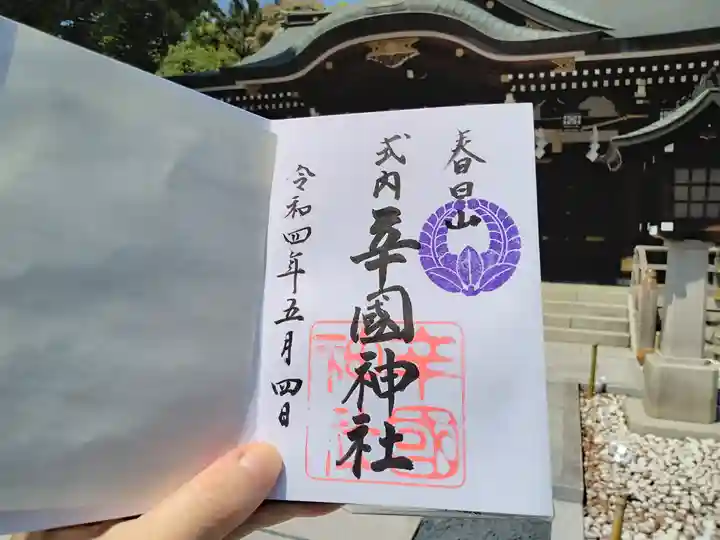 春日山
式内 辛國神社
辛國
神社
令和四年五月四日